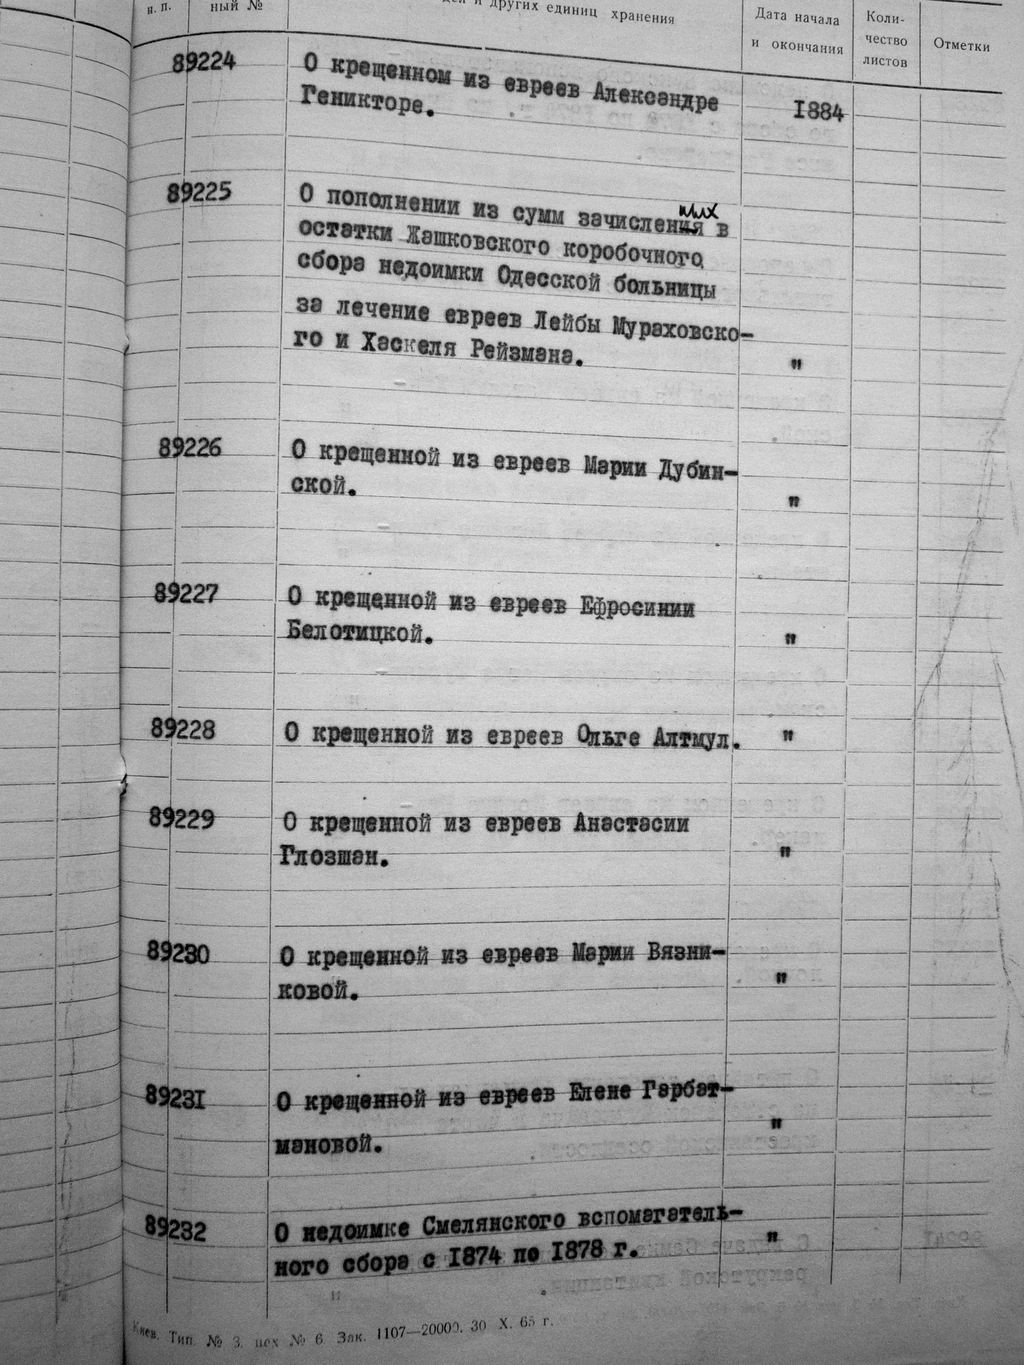 п. п.
ный №
и других единиц хранения
Дата начала
и окончания
Коли-
чество
листов
Отметки
89224
О крещенном из евреев Александре
Геникторе.
1884
89225
О пополнении из сумм зачисленных в
остатки Жашковского коробочного
сбора недоимки Одесской больницы
за лечение евреев Лейбы Мураховско-
го и Хаскеля Рейзмана.
"
89226
О крещенной из евреев Марии Дубин-
ской.
"
89227
О крещенной из евреев Ефросинии
Белотицкой.
"
89228
О крещенной из евреев Ольге Алтмул.
"
89229
О крещенной из евреев Анастасии
Глозман.
"
89230
О крещенной из евреев Марии Вязни-
ковой.
"
89231
О крещенной из евреев Елене Гарбат-
мановой.
"
89232
О недоимке Смелянского вспомагатель-
ного сбора с 1874 по 1878 г.
"
Киев. Тип. № 3. цех № 6. Зак. 1107—20000. 30 X. 65 г.